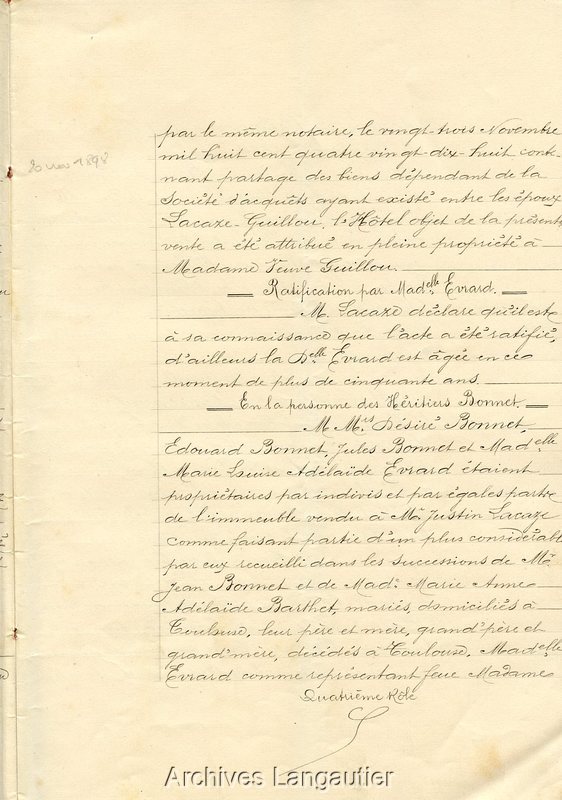 20 nov 1898
par le même notaire, le vingt-trois Novembre
mil huit cent quatre vingt-dix-huit conte-
nant partage des biens dépendant de la
Société d'acquêts ayant existé entre les époux
Lacaze-Guillou, l'Hôtel objet de la présente
vente a été attribué en pleine propriété à
Madame Veuve Guillou.
Ratification par Mad.elle Evrard.
M. Lacaze déclare qu'il est
à sa connaissance que l'acte a été ratifié,
d'ailleurs la D.elle Evrard est âgée en ce
moment de plus de cinquante ans.
En la personne des Héritiers Bonnet.
M.M.rs Désiré Bonnet,
Edouard Bonnet, Jules Bonnet et Mad.elle
Marie Louise Adélaïde Evrard étaient
propriétaires par indivis et par égales parts
de l'immeuble vendu à M. Justin Lacaze
comme faisant partie d'un plus considérable
par eux recueilli dans les successions de M.
Jean Bonnet et de Mad.e Marie Anne
Adélaïde Barthet, mariés, domiciliés à
Toulouse, leur père et mère, grand'père et
grand'mère, décédés à Toulouse, Mad.elle
Evrard comme représentant feue Madame
Quatrième Rôle
Archives Langautier